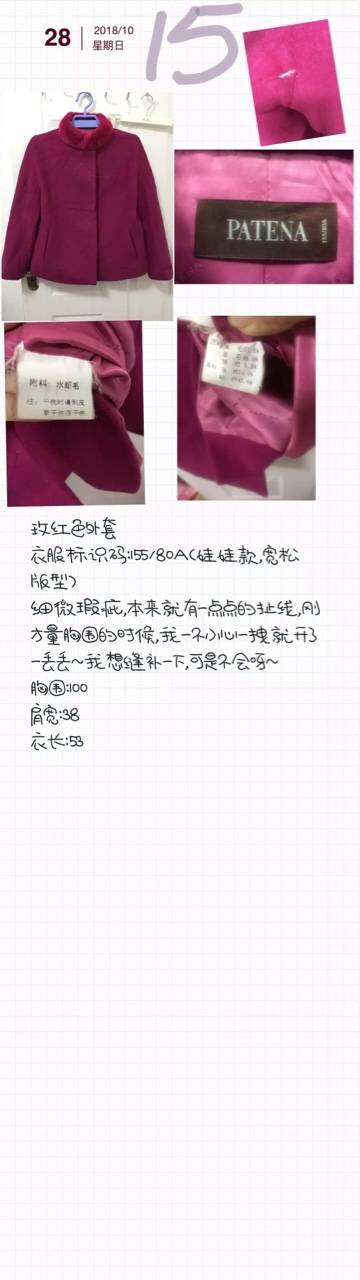 28
2018/10
星期日
15
PATENA
附料 水貂毛
注：干洗时请将皮
玫红色外套
衣服标识码:155/80A(娃娃款,宽松
版型)
细微瑕疵,本来就有一点点的扯线,刚
方量胸围的时候,我一不小心一拽就开了
一丢丢~我想缝补一下,可是不会呀~
胸围:100
肩宽:38
衣长:53